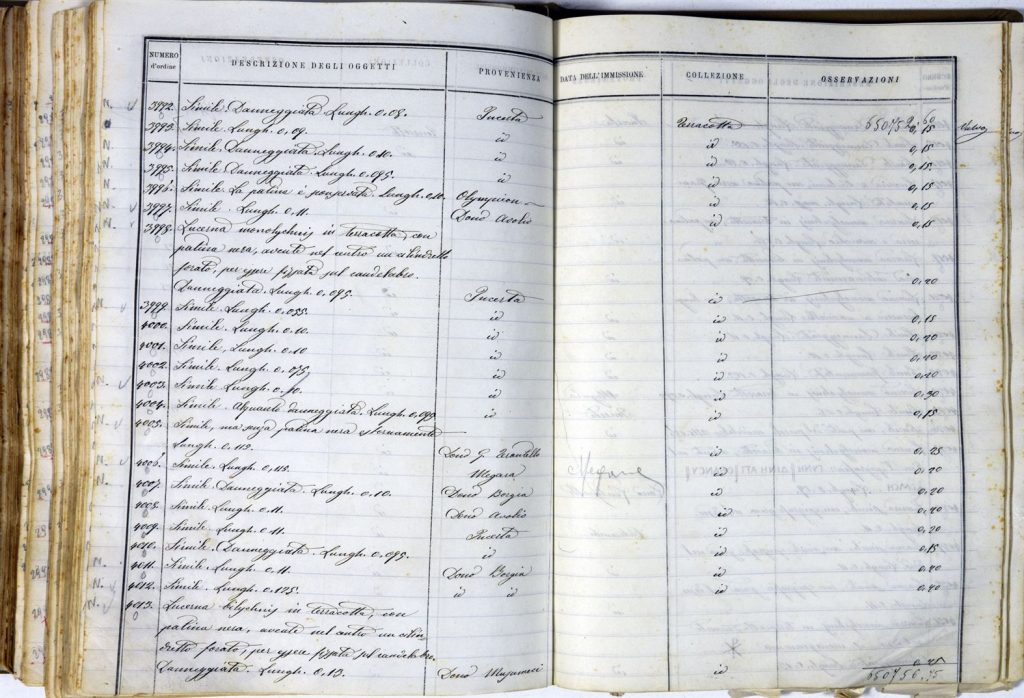 NUMERO d'ordine DESCRIZIONE DEGLI OGGETTI PROVENIENZA DATA DELL'IMMISSIONE COLLEZIONE OSSERVAZIONI
650752.60
3992. Simile. Danneggiata. Lungh. 0.08. Incerta Terracotta 0,15
3993. Simile. Lungh. 0,09. id id 0,15
3994. Simile. Danneggiata. Lungh. 0.10. id id 0,15
3995. Simile. Danneggiata. Lungh. 0.095. id id 0,15
3996. Simile. La patina è Lungh. 0.10. Olympieion id 0,15
3997. Simile. Lungh. 0.11. Dono id 0,15
3998. Lucerna monolychnis in terracotta, con
patina nera, avente nel centro un cilindretto
forato, per essere fissata sul candelabro.
Danneggiata. Lungh. 0,095. Incerta id 0,20
3999. Simile. Lungh. 0.055. id id 0,15
4000. Simile. Lungh. 0.10. id id 0,20
4001. Simile. Lungh. 0.10 id id 0,20
4002. Simile. Lungh. 0,075, id id 0,20
4003. Simile. Lungh. 0,10. id id 0,30
4004. Simile. Alquanto danneggiata. Lungh. 0,095 id id 0,15
4005. Simile, ma senza patina nera esternamente
Lungh. 0.112. Dono G. id 0,25
4006. Simile. Lungh. 0,115. Megara Megara id 0,20
4007. Simile. Danneggiata. Lungh. 0.10. Dono Borgia id 0,20
4008. Simile. Lungh. 0.11. Dono id 0,20
4009. Simile. Lungh. 0.11. Incerta id 0,20
4010. Simile. Danneggiata. Lungh. 0,095. id id 0,15
4011. Simile. Lungh. 0.11. Dono Borgia id 0,20
4012. Simile. Lungh. 0.125. id id id 0,20
4013. Lucerna bilychnis in terracotta, con
patina nera, avente nel centro un cilin-
dretto forato, per essere fissata sul candelabro.
Danneggiata. Lungh. 0,13. Dono id 0,25
650756.75